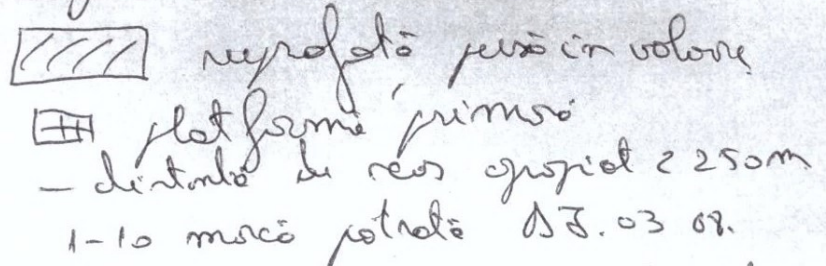 suprafață pusă în valoare
platformă primară
- distanță de scos apropiat 2 250m
1-10 marcă pătrată DJ. 03 08.